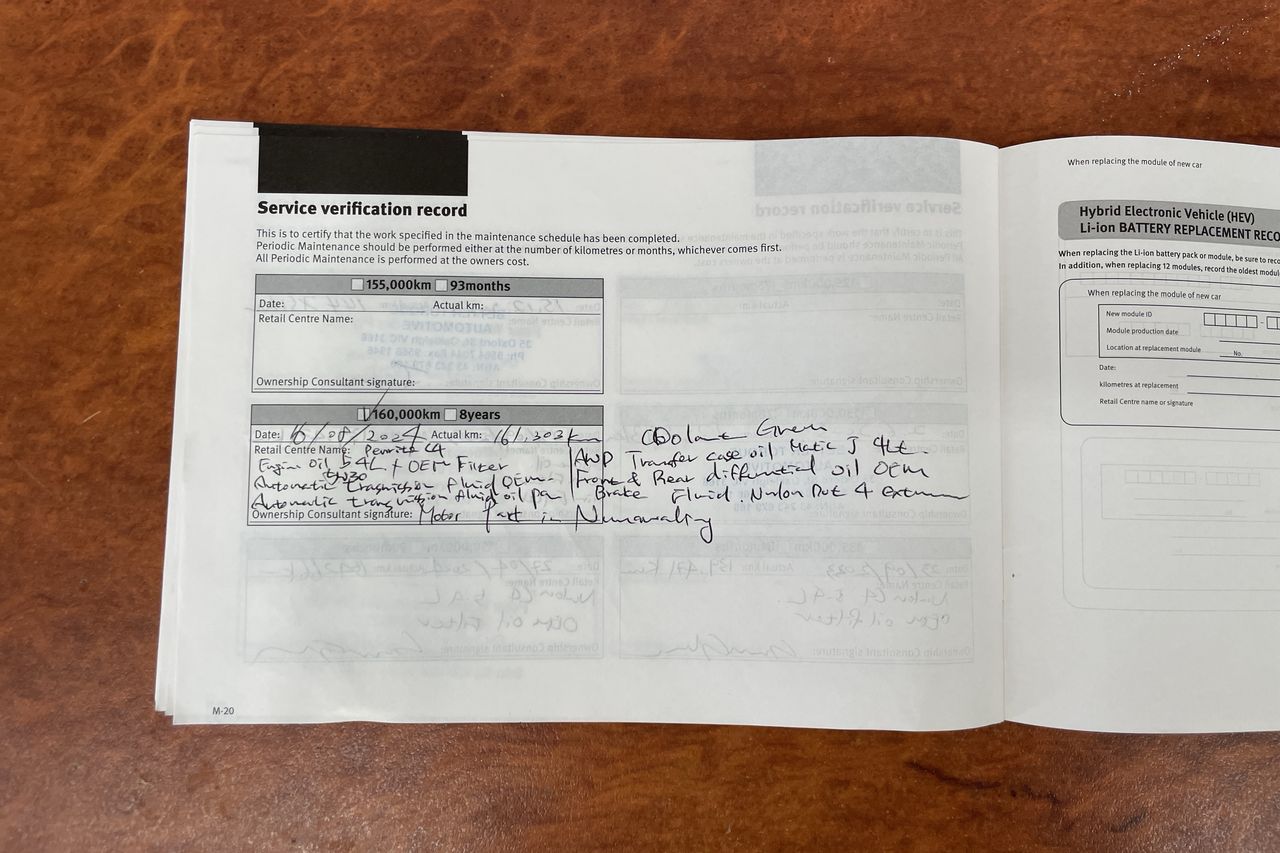 Service verification record
This is to certify that the work specified in the maintenance schedule has been completed.
Periodic Maintenance should be performed either at the number of kilometres or months, whichever comes first.
All Periodic Maintenance is performed at the owners cost.
155,000km 93months
Date: Actual km:
Retail Centre Name:
Ownership Consultant signature:
160,000km 8years
Date: 16/08/2024 Actual km: 161,303km
Retail Centre Name: Penrite C4
Engine Oil 5.4L + OEM Filter
Automatic Trasmission Fluid OEM
Automatic transmission fluid oil pan
Ownership Consultant signature: Motor Part in Nunawading
Coolant Green
AWD Transfer case oil Matic J 4Lt
Front & Rear differential oil OEM
Brake Fluid. Nulon Dot 4
M-20
When replacing the module of new car
Hybrid Electronic Vehicle (HEV)
Li-ion BATTERY REPLACEMENT RECO
When replacing the Li-ion battery pack or module, be sure to reco
In addition, when replacing 12 modules, record the oldest modul
When replacing the module of new car
New module ID
Module production date
Location at replacement module No.
Date:
kilometres at replacement
Retail Centre name or signature